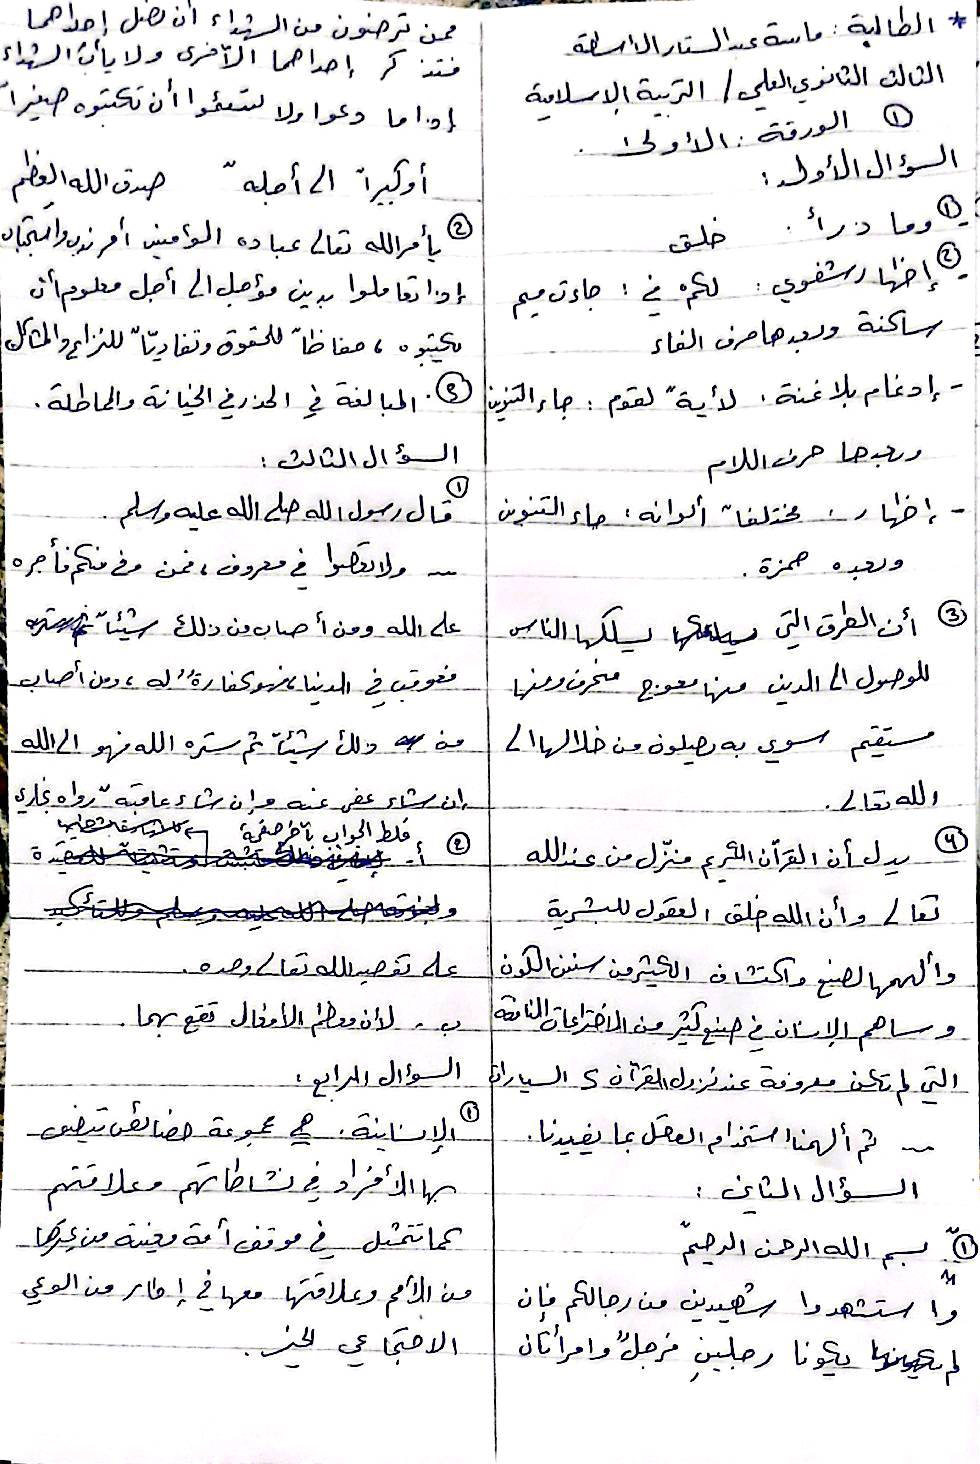 * الطالبة : ماسة عبد الستار الاسطة
الثالث الثانوي العلمي / التربية الإسلامية
① الورقة : الأولى .
السؤال الأول :
① وما ذرأ . خلق
② إظهار شفوي : لكم في : جاءت ميم
ساكنة وبعدها حرف الفاء
- إدغام بلا غنة : لأيةً لقوم : جاء التنوين
وبعدها حرف اللام
- إظهار : مختلفاً ألوانه : جاء التنوين
وبعده همزة .
③ أن الطرق التي يسلكها الناس
للوصول الى الدين منها معوج منحرف ومنها
مستقيم سوي به يصلون من خلالها الى
الله تعالى .
④ يدل أن القرآن الكريم منزّل من عند الله
تعالى وأن الله خلق العقول للبشرية
وألهمها لصنع واكتشاف الكثير من سنن الكون
وساهم الإنسان في صنع كثير من الاختراعات النافعة
التي لم تكن معروفة عند نزول القرآن ك السيارات
ثم ألهمنا استخدام العقل بما يفيدنا .
السؤال الثاني :
① بسم الله الرحمن الرحيم
"وا ستشهدوا شهيدين من رجالكم فإن
لم يكونا رجلينِ فرجلٌ وامرأتان
ممن ترضون من الشهداء أن تضل إحداهما
فتذكر إحداهما الأخرى ولا يأب الشهداء
إذا ما دعوا ولا تسئموا أن تكتبوه صغيراً
أو كبيراً الى أجله " صدق الله العظيم
② يأمر الله تعالى عباده المؤمنين أمر ندب واستحباب
إذا تعاملوا بدين مؤجل الى أجل معلوم أن
يكتبوه ، حفاظاً للحقوق وتفادياً للنزاع والمشاكل
③ . المبالغة في الحذر في الخيانة والمماطلة .
السؤال الثالث :
① قال رسول الله صلى الله عليه وسلم .
ولا تعصوا في معروف ، فمن وفى منكم فأجره
على الله ومن أصاب من ذلك شيئاً
فعوقب في الدنيا ، فهو كفارةٌ له ، ومن أصاب
من ذلك شيئاً ثم ستره الله فهو الى الله
إن شاء عفى عنه وإن شاء عاقبه " رواه بخاري
غلط الجواب بآخر صفحة
② أ-
على توحيد الله تعالى وحده .
ب - لأن معظم الأفعال تقع بهما .
السؤال الرابع :
① الإنسانية . هي مجموعة خصائص تتصف
بها الأفراد في نشاطاتهم وعلاقتهم
كما تتمثل في موقف أمة معينة من غيرها
من الأمم وعلاقتها معها في إطار من الوعي
الاجتماعي الخير .